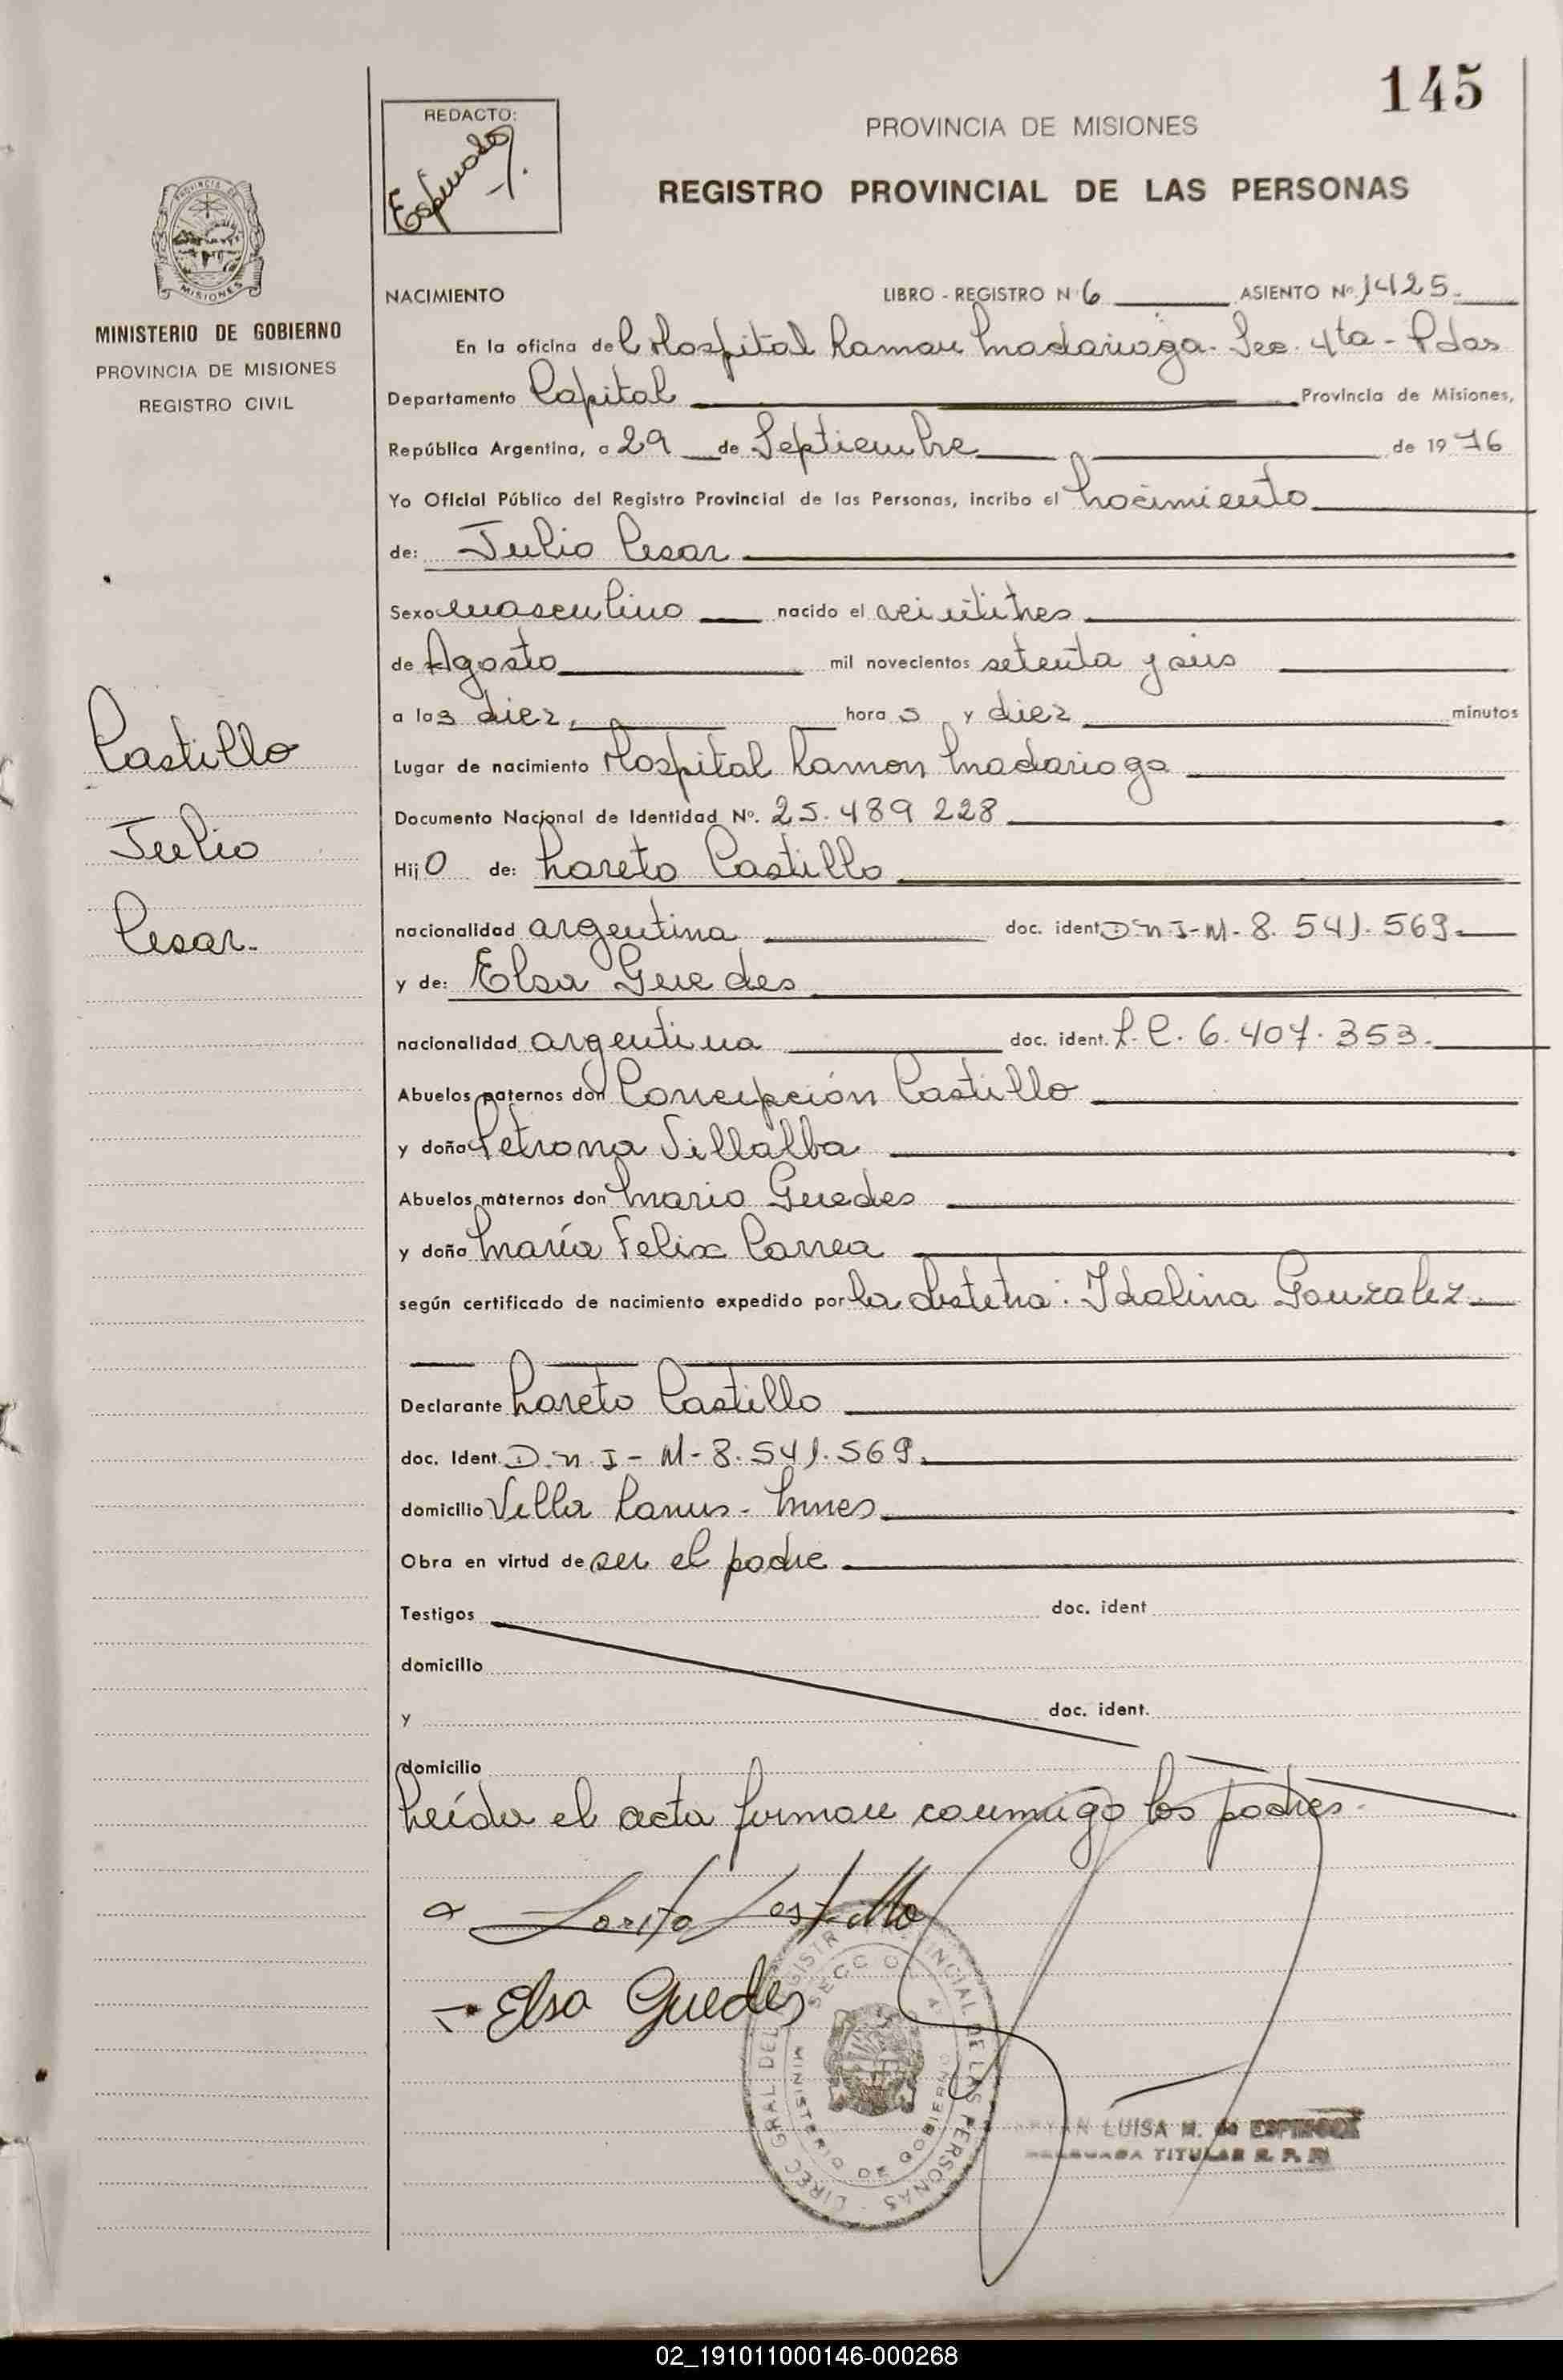 145
REDACTO:
PROVINCIA DE MISIONES
REGISTRO PROVINCIAL DE LAS PERSONAS
PROVINCIA DE
MISIONES
MINISTERIO DE GOBIERNO
PROVINCIA DE MISIONES
REGISTRO CIVIL
Castillo
Julio
Cesar.
NACIMIENTO LIBRO - REGISTRO Nº 6 ASIENTO Nº 1425.
En la oficina del Hospital Ramon Madariaga. Sec. 4ta - Pdas
Departamento Capital Provincia de Misiones,
República Argentina, a 29 de Septiembre de 1976
Yo Oficial Público del Registro Provincial de las Personas, incribo el nacimiento
de: Julio Cesar
Sexo masculino nacido el veintitres
de Agosto mil novecientos setenta y seis
a las diez, horas y diez minutos
Lugar de nacimiento Hospital Ramon Madariaga
Documento Nacional de Identidad Nº. 25.489 228
Hijo de: Loreto Castillo
nacionalidad argentina doc. ident D n I-M-8.541.569.
y de: Elsa Guedes
nacionalidad argentina doc. ident. L.C. 6.407.353.
Abuelos paternos don Concepción Castillo
y doña Petrona Villalba
Abuelos maternos don Mario Guedes
y doña María Felix Correa
según certificado de nacimiento expedido por la obstetra: Idalina Gonzalez
Declarante Loreto Castillo
doc. Ident. D.n.I-M-8.541.569.
domicilio Villa Lanus - Mnes
Obra en virtud de ser el padre
Testigos doc. ident
domicilio
y doc. ident.
domicilio
Leída el acta firman conmigo los padres.
Elsa Guedes
DIREC GRAL DEL REGISTR PROVINCIAL DE LAS PERSONAS
MINISTERIO DE GOBIERNO
LUISA M. de ESPINOZA
TITULAR R. P. P.
02_191011000146-000268